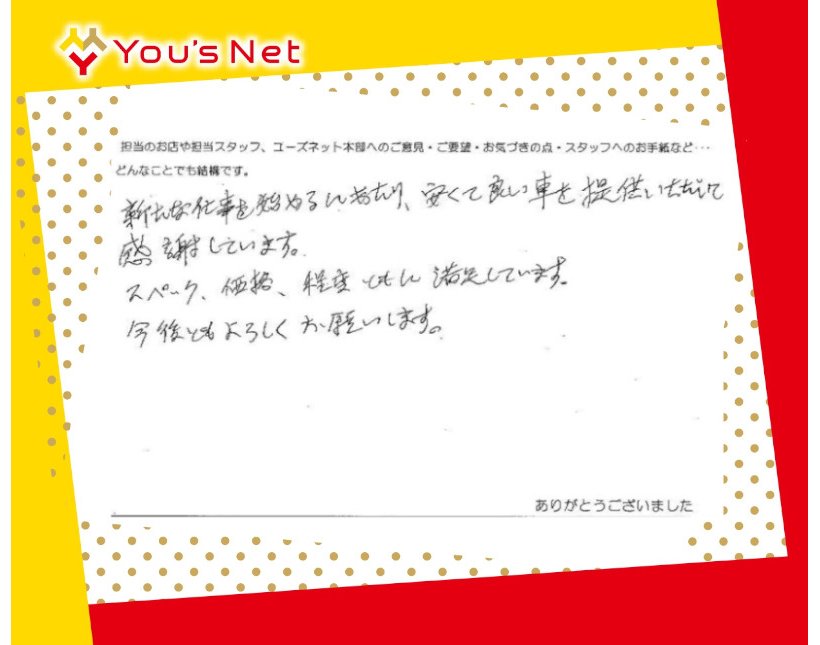 You's Net
担当のお店や担当スタッフ、ユーズネット本部へのご意見・ご要望・お気づきの点・スタッフへのお手紙など…
どんなことでも結構です。
新たな仕事を始めるにあたり、安くて良い車を提供いただいて
感謝しています。
スペック、価格、程度ともに満足しています。
今後ともよろしくお願いします。
ありがとうございました